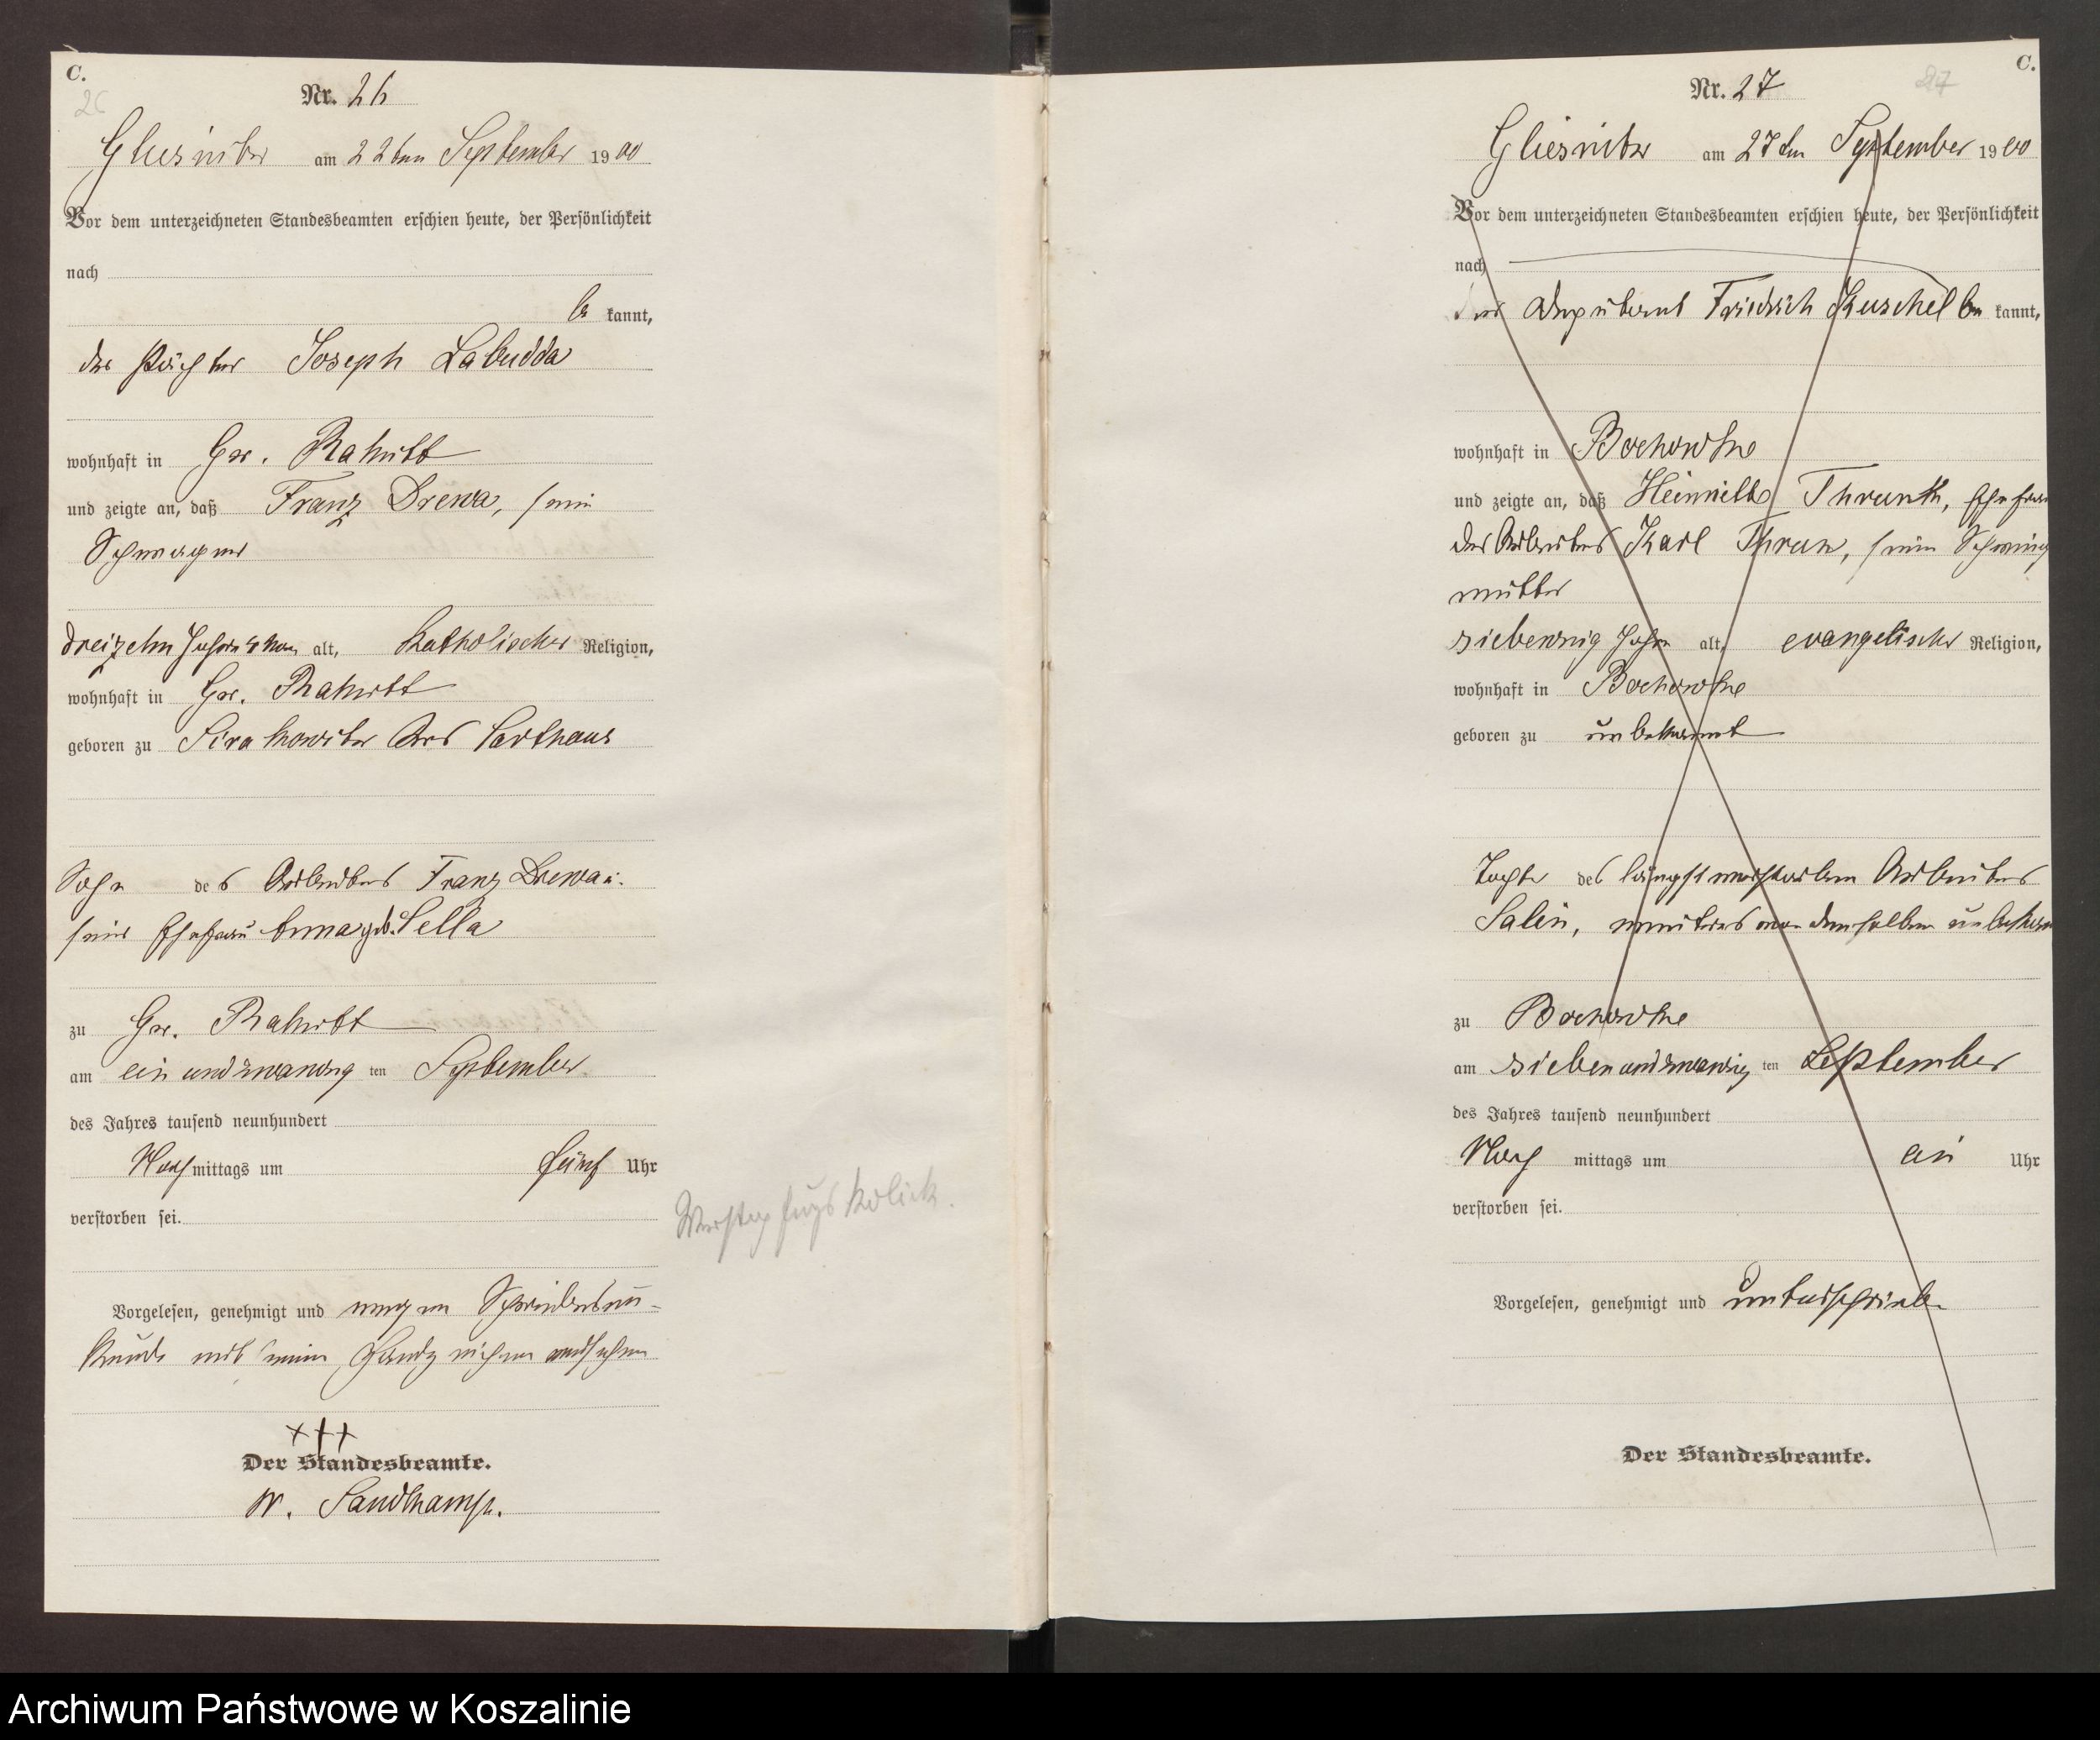 C.
26
Nr. 26
Gliesnitz am 22ten September 1900
Vor dem unterzeichneten Standesbeamten erschien heute, der Persönlichkeit
nach
be kannt,
der Pächter Joseph Labudda
wohnhaft in Gr. Rakitt
und zeigte an, daß Franz Drewa, sein
Schwager
dreizehn Jahre alt, katholischer Religion,
wohnhaft in Gr. Rakitt
geboren zu Sirakowitz Krs Carthaus
Sohn des Arbeiters Franz Drewa u.
seine Ehefrau Anna geb. Sella
zu Gr. Rakitt
am ein und zwanzig ten September
des Jahres tausend neunhundert
Nach mittags um fünf Uhr
verstorben sei.
Verstopfungs Kolick.
Vorgelesen, genehmigt und wegen Schreibensun-
kunde mit seinem Handzeichen versehen
+++
Der Standesbeamte.
W. Sandkamp.
C.
27
Nr. 27
Gliesnitz am 27ten September 1900
Vor dem unterzeichneten Standesbeamten erschien heute, der Persönlichkeit
nach
der Friedrich Kuschel be kannt,
wohnhaft in Bochowke
und zeigte an, daß Thrunk, Ehefrau
des Arbeiters Karl Thrun, seine Schwieg
mutter
siebenzig Jahre alt, evangelischer Religion,
wohnhaft in Bochowke
geboren zu unbekannt
Tochter des längst verstorbenen Arbeiters
Salin, weiteres von demselben unbekann
zu Bochowke
am sieben und zwanzig ten September
des Jahres tausend neunhundert
Nach mittags um ein Uhr
verstorben sei.
Vorgelesen, genehmigt und unterschrieben
Der Standesbeamte.
Archiwum Państwowe w Koszalinie